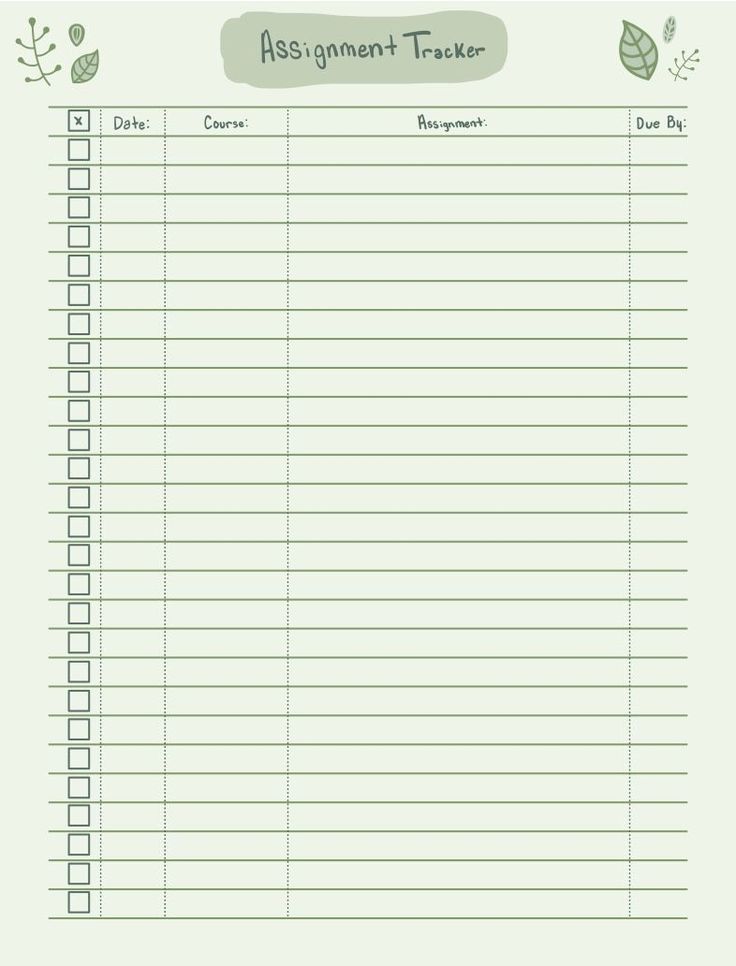 Assignment Tracker
x Date: Course: Assignment: Due By: